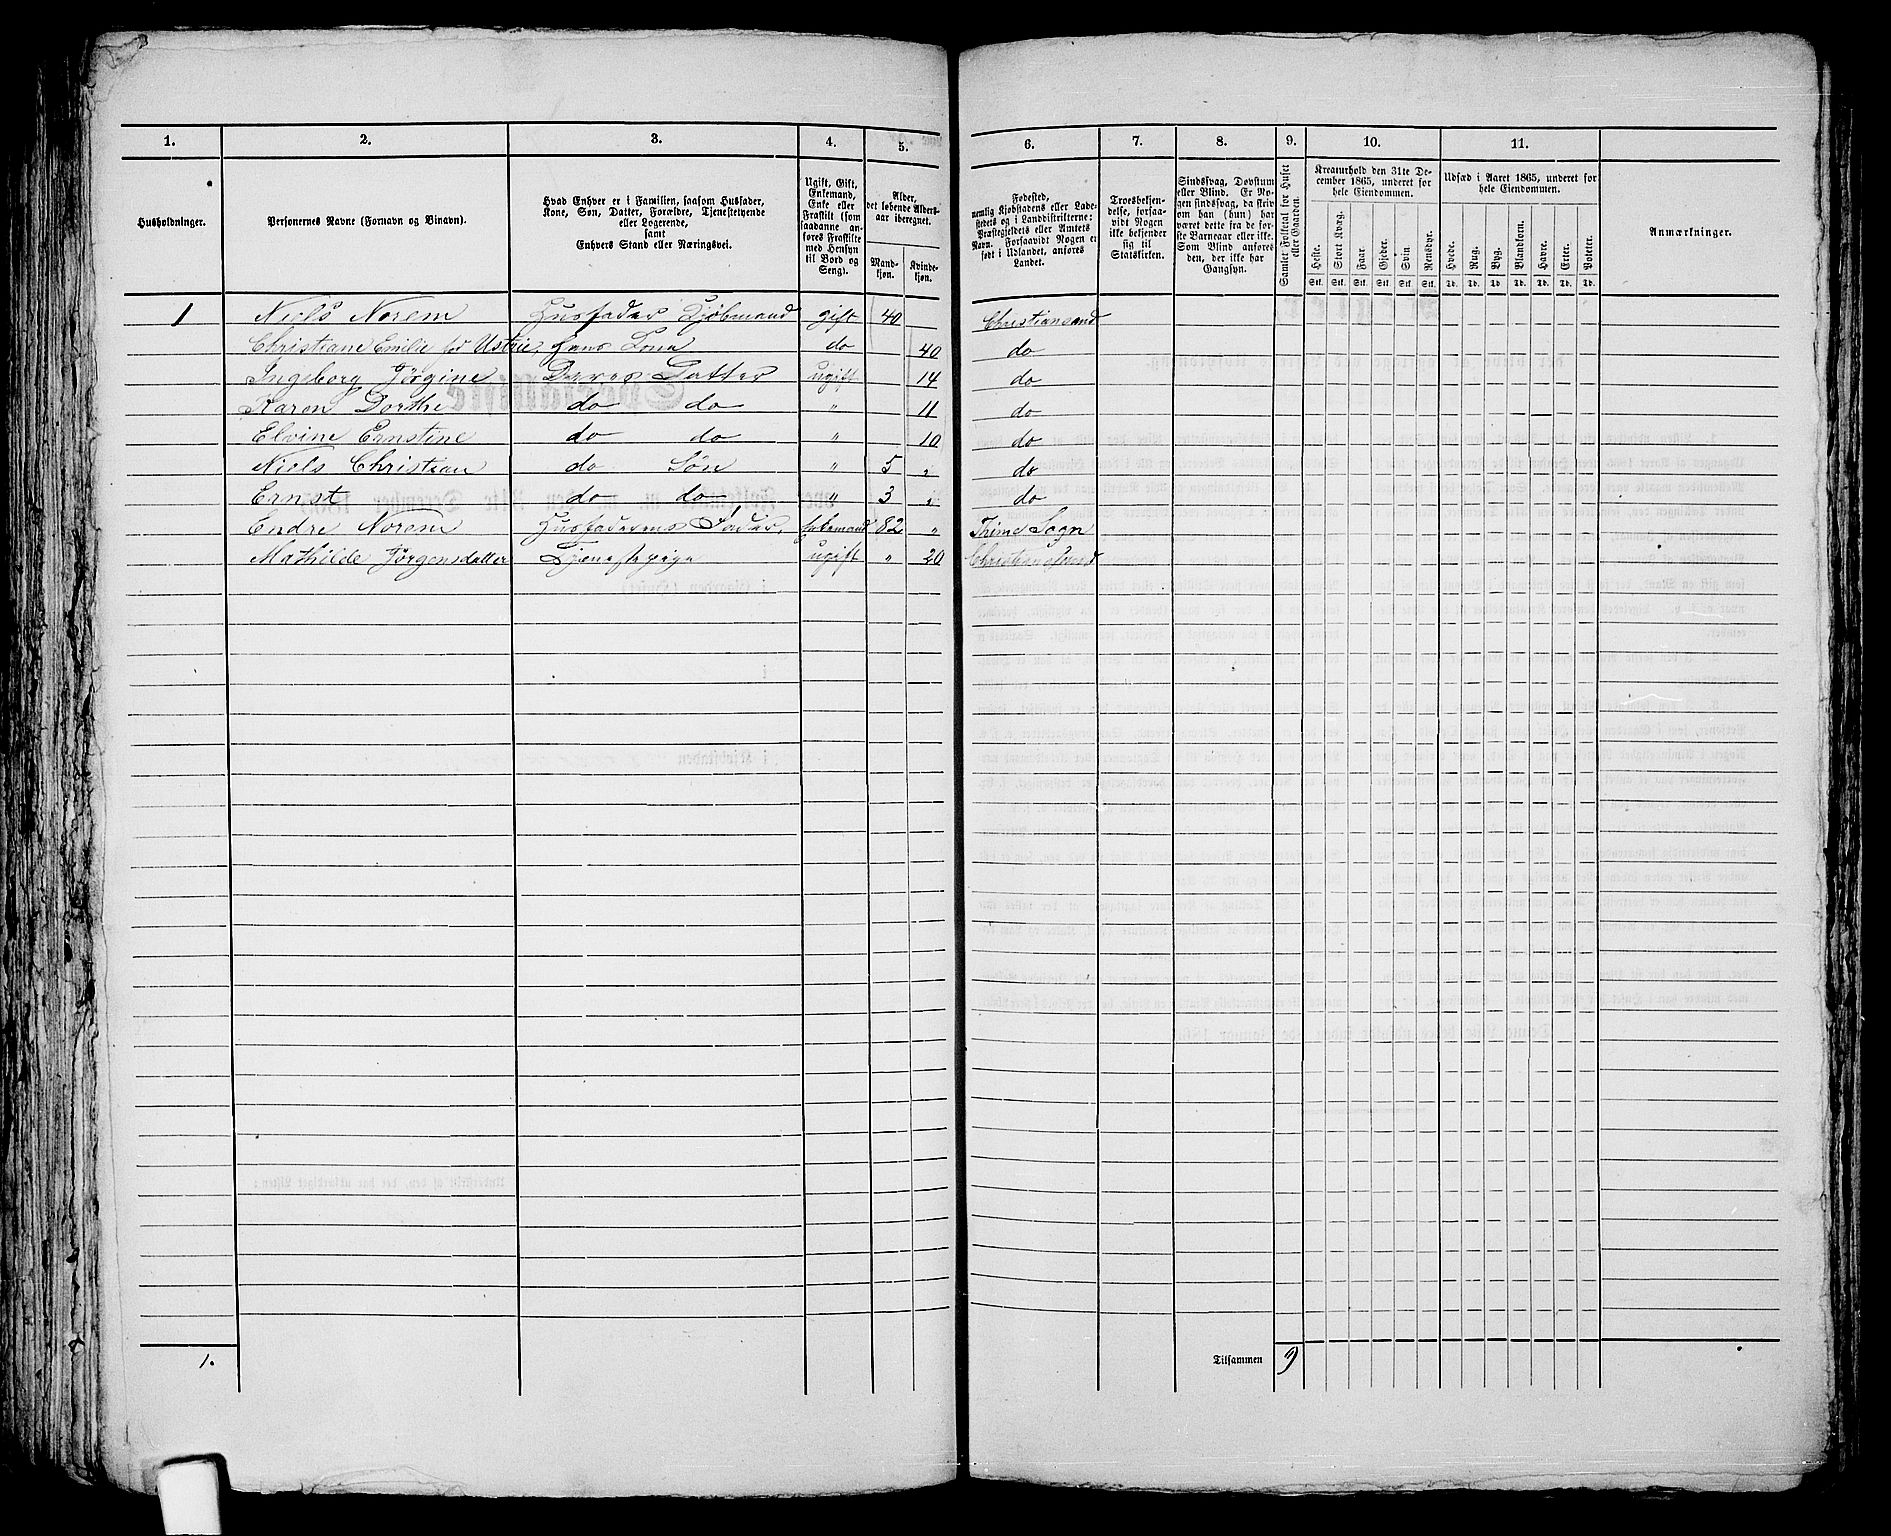 1. 2. 3. 4. 5. 6. 7. 8. 9. 10. 11.
Husholdninger.
Personernes Navne (Fornavn og Binavn).
Hvad Enhver er i Familien, saasom Husfader,
Kone, Søn, Datter, Forældre, Tjenestetyende
eller Logerende,
samt
Enhvers Stand eller Næringsvei.
Ugift, Gift,
Enkemand,
Enke eller
Fraskilt (som
saadanne an-
føres Fraskilte
med Hensyn
til Bord og
Seng).
Alder,
det løbende Alders-
aar iberegnet.
Mand-
kjøn.
Kvinde-
kjøn.
Fødested,
nemlig Kjøbstadens eller Lade-
stedets og i Landdistrikterne:
Præstegjeldets eller Amtets
Navn. Forsaavidt Nogen er
født i Udlandet, anføres
Landet.
Troesbekjen-
delse, forsaa-
vidt Nogen
ikke bekjender
sig til
Statskirken.
Sindssvag, Døvstum
eller Blind. Er No-
gen sindssvag, da skriv
om han (hun) har
været dette fra de før-
ste Barneaar eller ikke.
Som Blind anføres
den, der ikke har
Gangsyn.
Samlet Folketal for Huset
eller Gaarden.
Kreaturhold den 31te De-
cember 1865, underet for
hele Eiendommen.
Heste. Stort Kvæg. Faar. Gjeder. Svin. Rensdyr.
Stk. Stk. Stk. Stk. Stk. Stk.
Udsæd i Aaret 1865, underet for
hele Eiendommen.
Hvede. Rug. Byg. Blandkorn. Havre. Erter. Poteter.
Td. Td. Td. Td. Td. Td. Td.
Anmærkninger.
1 Niels Norem Husfader Kjøbmand gift 40 Christiansand
Christiane Emilie fød Ustrie, hans Kone do 40 do
Ingeborg Jørgine Deres Datter ugift 14 do
Karen Dorthe do do " 11 do
Elvine Ernstine do do " 10 do
Niels Christian do Søn " 5 " do
Ernst do do " 3 " do
Endre Norem Husfaderens Fader, Enkemand 82 " Thime Sogn
Mathilde Jørgensdatter Tjenestepige ugift " 20 Christiansand
1. Tilsammen 9